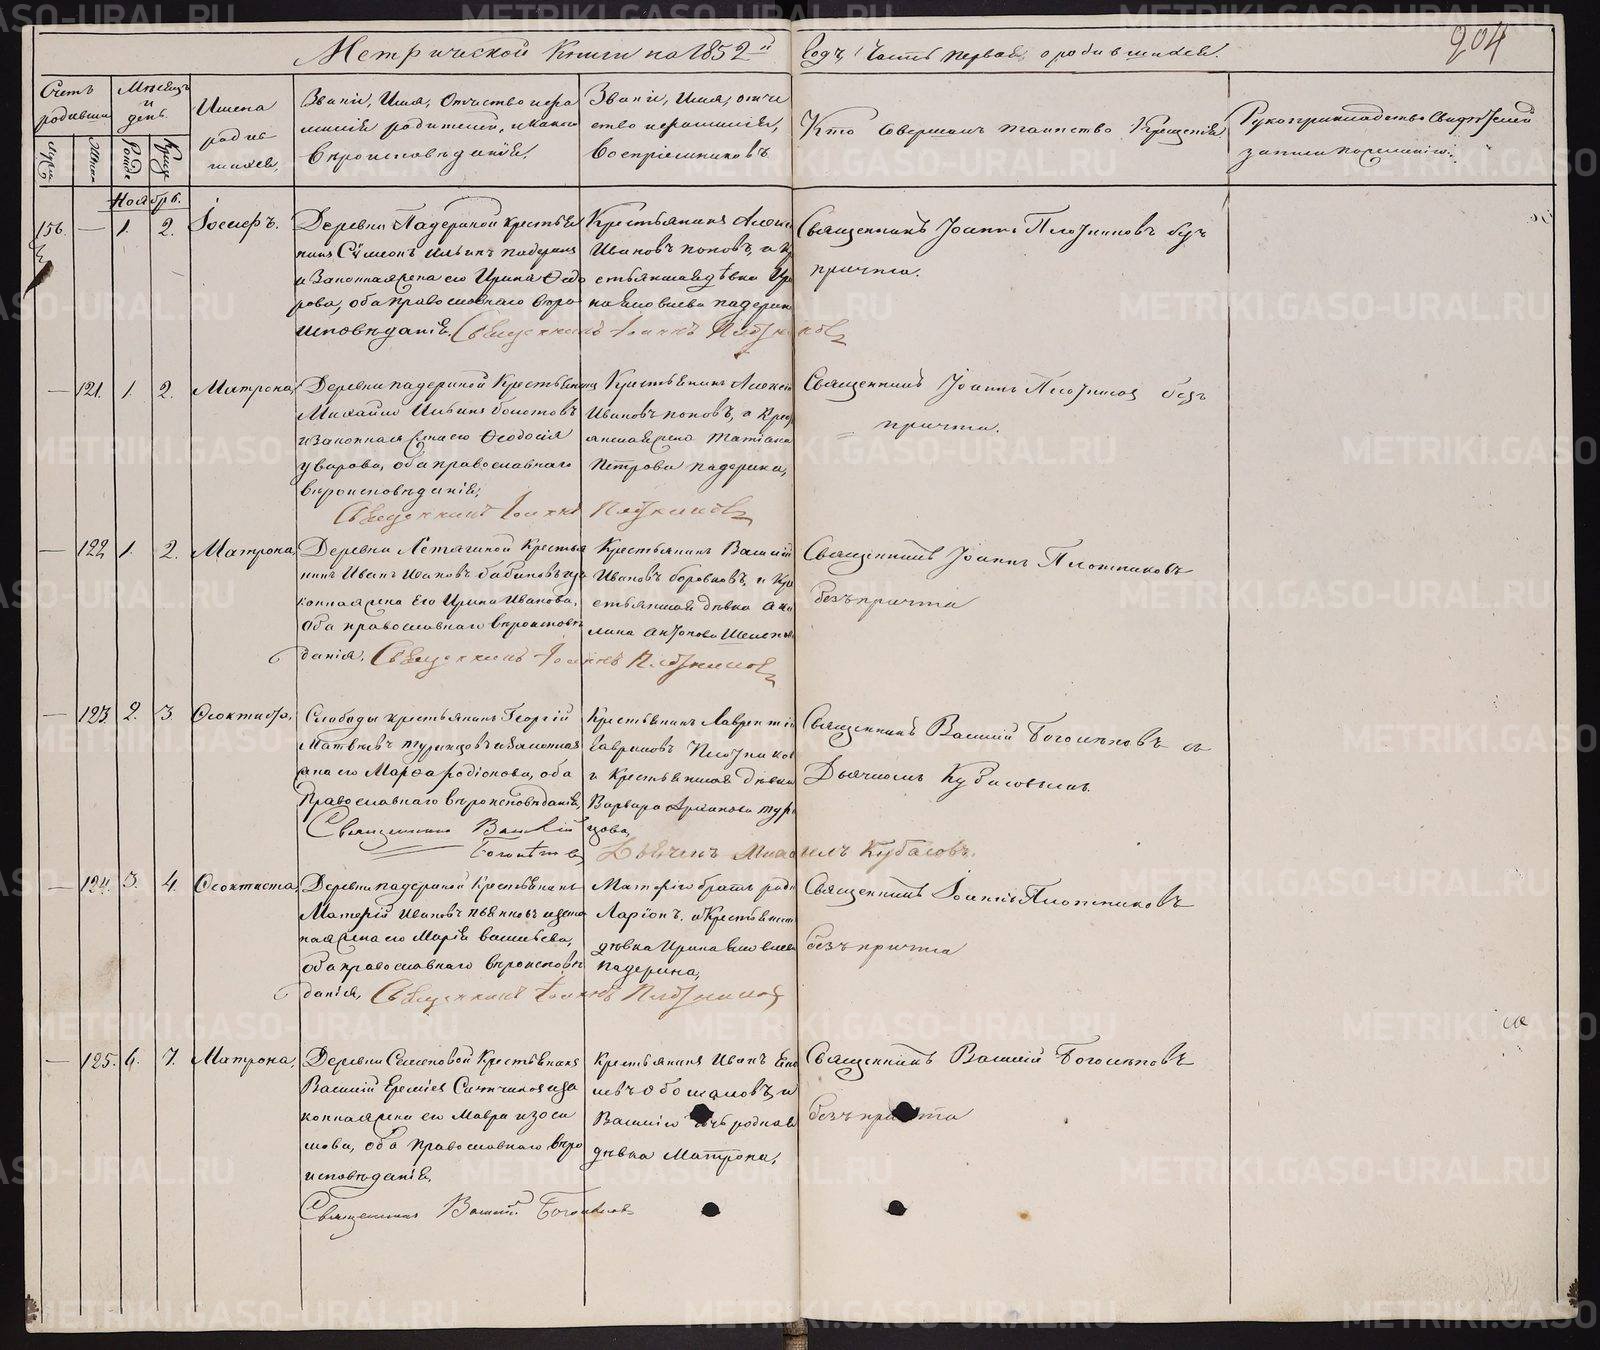 Метрической Книги на 1852й Годъ, Часть первая, о родившихся.
204
Счетъ родивших
Мѣсяцъ и день.
Имена родив шихся,
Званіе, Имя, Отчество и фа милія родителей, и какого вѣроисповѣданія,
Званіе, Имя, отче ство и фамилія, Воспріемниковъ
Кто совершалъ таинство Крещенія
Рукоприкладство Свидѣтелей записи по желанію.
Ноябрь.
156. — 1. 2. Іосифъ.
Деревни Падериной крестья
нинъ Сѵмеонъ Ильинъ Падеринъ
и Законная жена его Ирина Ѳедо
рова, оба православнаго вѣро
исповѣданія. Священникъ Іоаннъ Плотниковъ
Крестьянинъ Алексѣй
Ивановъ Поповъ, и кре
стьянская дѣвка Ири
на Яковлева Падерин
Священникъ Іоаннъ Плотниковъ безъ
причта.
— 121. 1. 2. Матрона,
Деревни Падериной Крестьянинъ
Михайло Ильинъ Болотовъ
и Законная жена его Ѳеодосія
Уварова, оба православнаго
вѣроисповѣданія,
Священникъ Іоаннъ Плотниковъ
Крестьянинъ Алексѣй
Ивановъ Поповъ, и Крест
янская жена Татіана
Петрова Падерина,
Священникъ Іоаннъ Плотниковъ безъ
причта.
— 122 1. 2. Матрона,
Деревни Летягиной Крестья
нинъ Иванъ Ивановъ Бабиновъ и за
конная жена Его Ирина Иванова,
Оба православнаго вѣроисповѣ
данія. Священникъ Іоаннъ Плотниковъ
Крестьянинъ Василій
Ивановъ Боровковъ, и Кре
стьянская дѣвка Аку
лина Антонова
Священникъ Іоаннъ Плотниковъ
безъ причта
— 123. 2. 3. Ѳеоктиста,
Слободы крестьянинъ Георгій
Матвѣевъ Турынцовъ и Законная
жена его Марѳа Родіонова, оба
Православнаго вѣроисповѣданія,
Священникъ Василій
Боголѣповъ
Крестьянинъ Лаврентій
Гавриловъ Плотников
и Крестьянская дѣвка
Варвара
цова,
Дьячекъ Михаилъ Кубасовъ.
Священникъ Василій Боголѣповъ съ
Дьячкомъ Кубасовымъ.
— 124. 3. 4. Ѳеоктиста,
Деревни Падериной Крестьянинъ
Матѳей Ивановъ Пьянковъ и зако
ная жена его Марія Васильева,
оба православнаго вѣроисповѣ
данія, Священникъ Іоаннъ Плотниковъ
братъ род
Ларіонъ. и Крестьянск
дѣвка Ирина Яковлева
Падерина,
Священникъ Іоаннъ Плотниковъ
безъ причта
— 125. 6. 7. Матрона,
Деревни Семеновой Крестьянинъ
Василій Еремѣев и за
конная жена его Мавра Изоси
мова, оба Православнаго вѣро
исповѣданія,
Священникъ Василій Боголѣповъ
Крестьянинъ Иванъ
и
Василія дочь родная
дѣвка Матрона,
Священникъ Василій Боголѣповъ
безъ причта